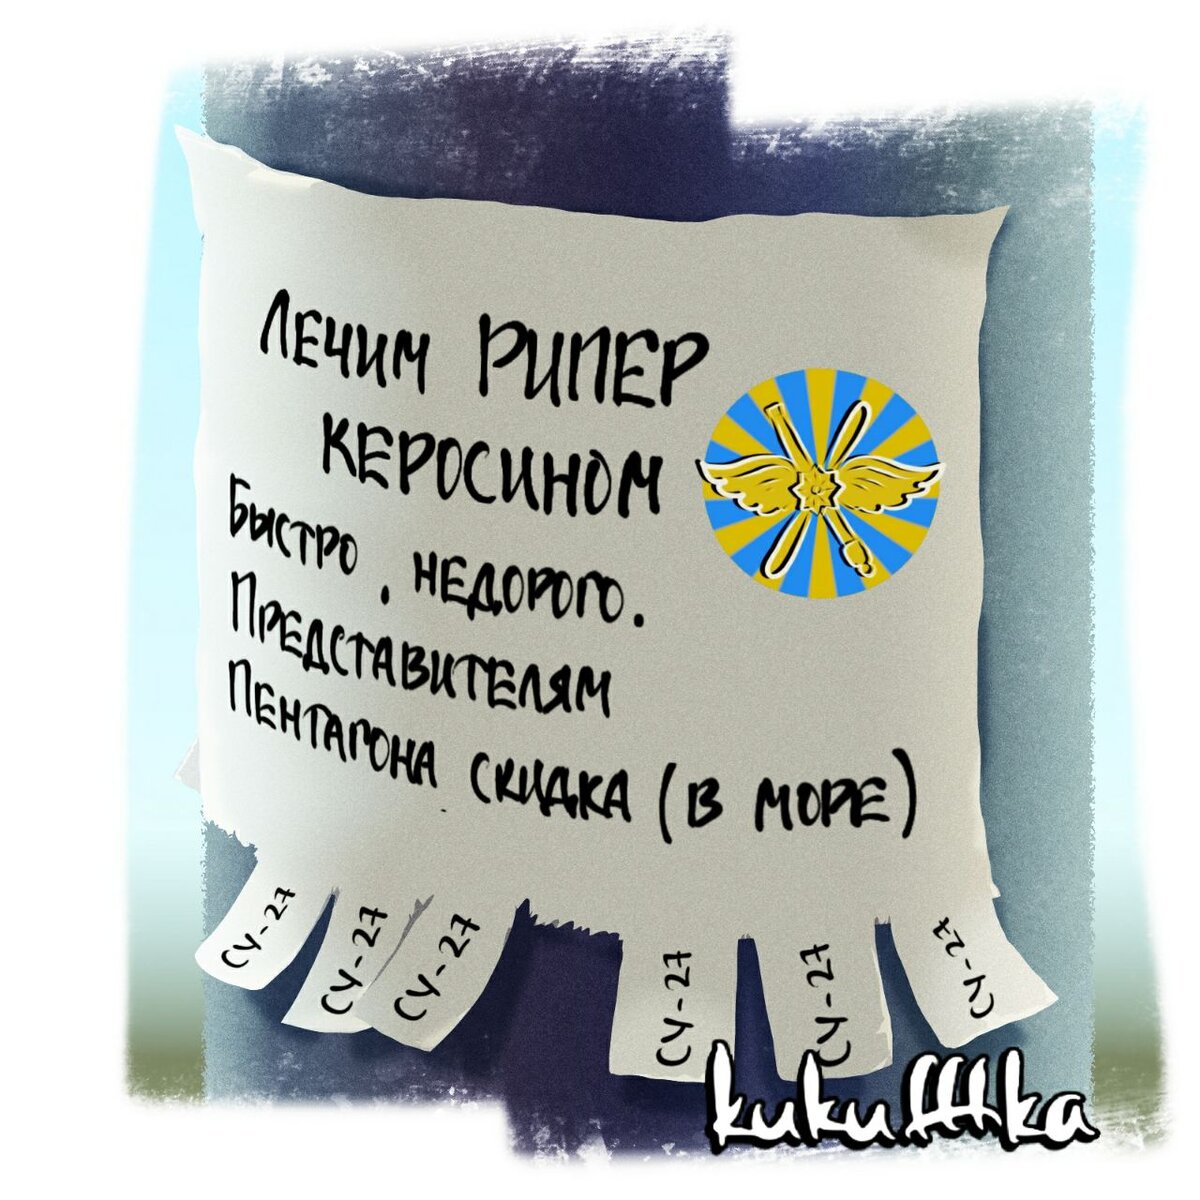 Лечим РИПЕР
КЕРОСИНОМ
Быстро, недорого.
Представителям
Пентагона скидка (в море)
СУ-27
СУ-27
СУ-27
СУ-27
СУ-27
СУ-27